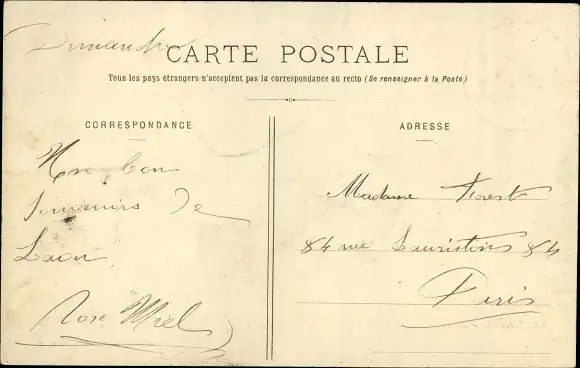 Dimanche
CARTE POSTALE
Tous les pays étrangers n'acceptent pas la correspondance au recto (Se renseigner à la Poste)
CORRESPONDANCE
Mon bon
souvenirs de
Laon
Rose
ADRESSE
Madame Forest
84 rue Lauristons 84
Paris